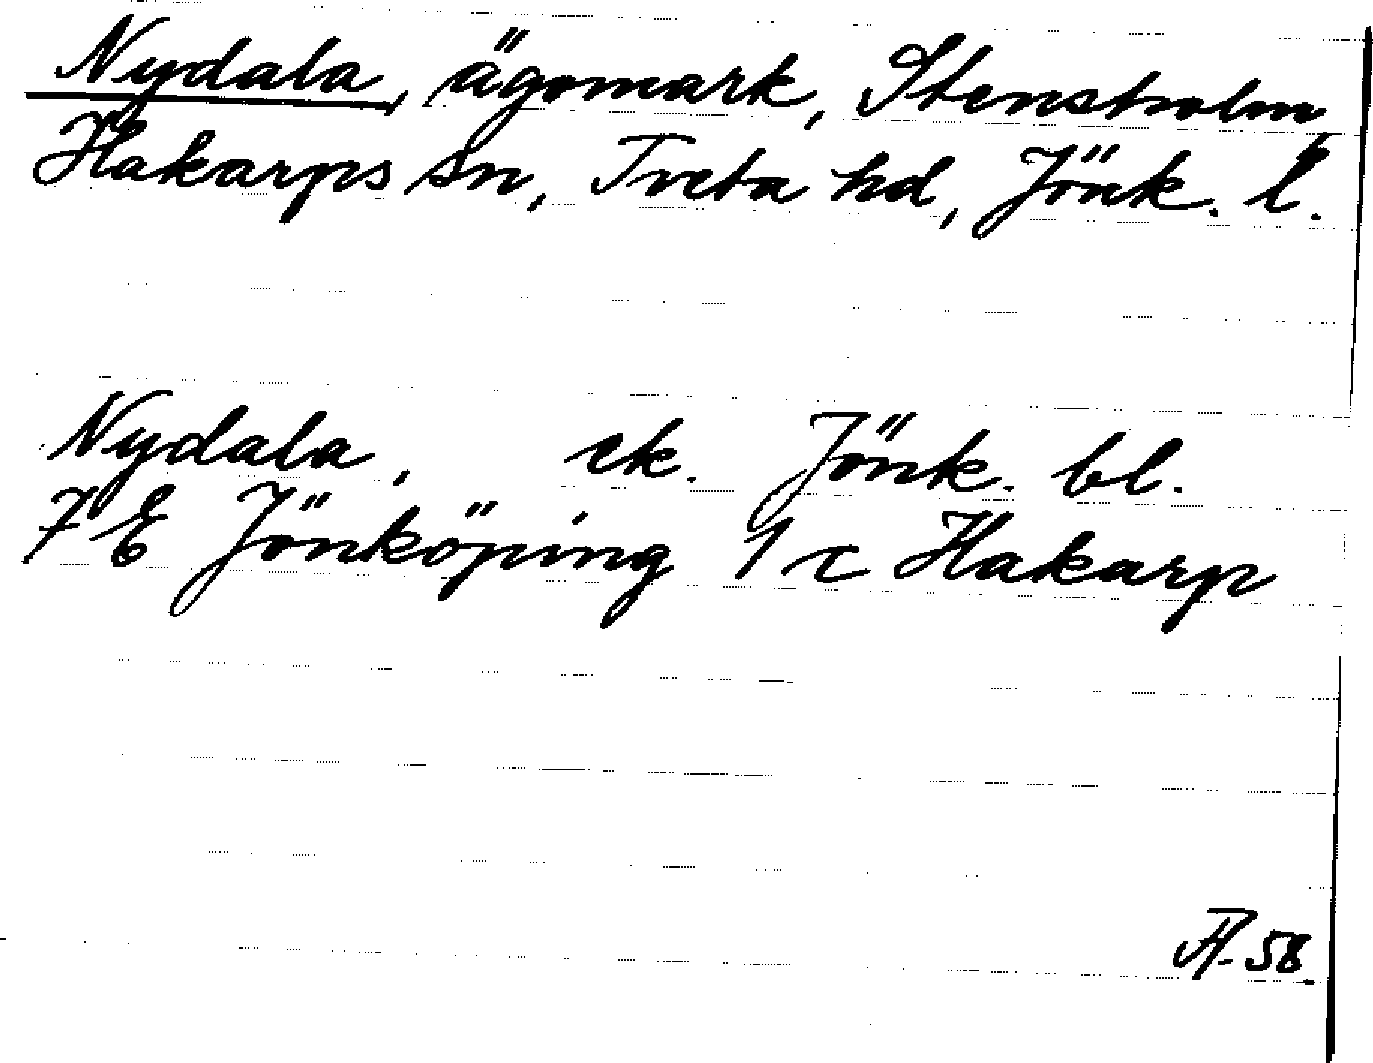 Nydala, ägomark, Stensholm,
Hakarps sn, Tveta hd, Jönk. l.
Nydala, ek. Jönk. bl.
7 E Jönköping 1 c Hakarp
58